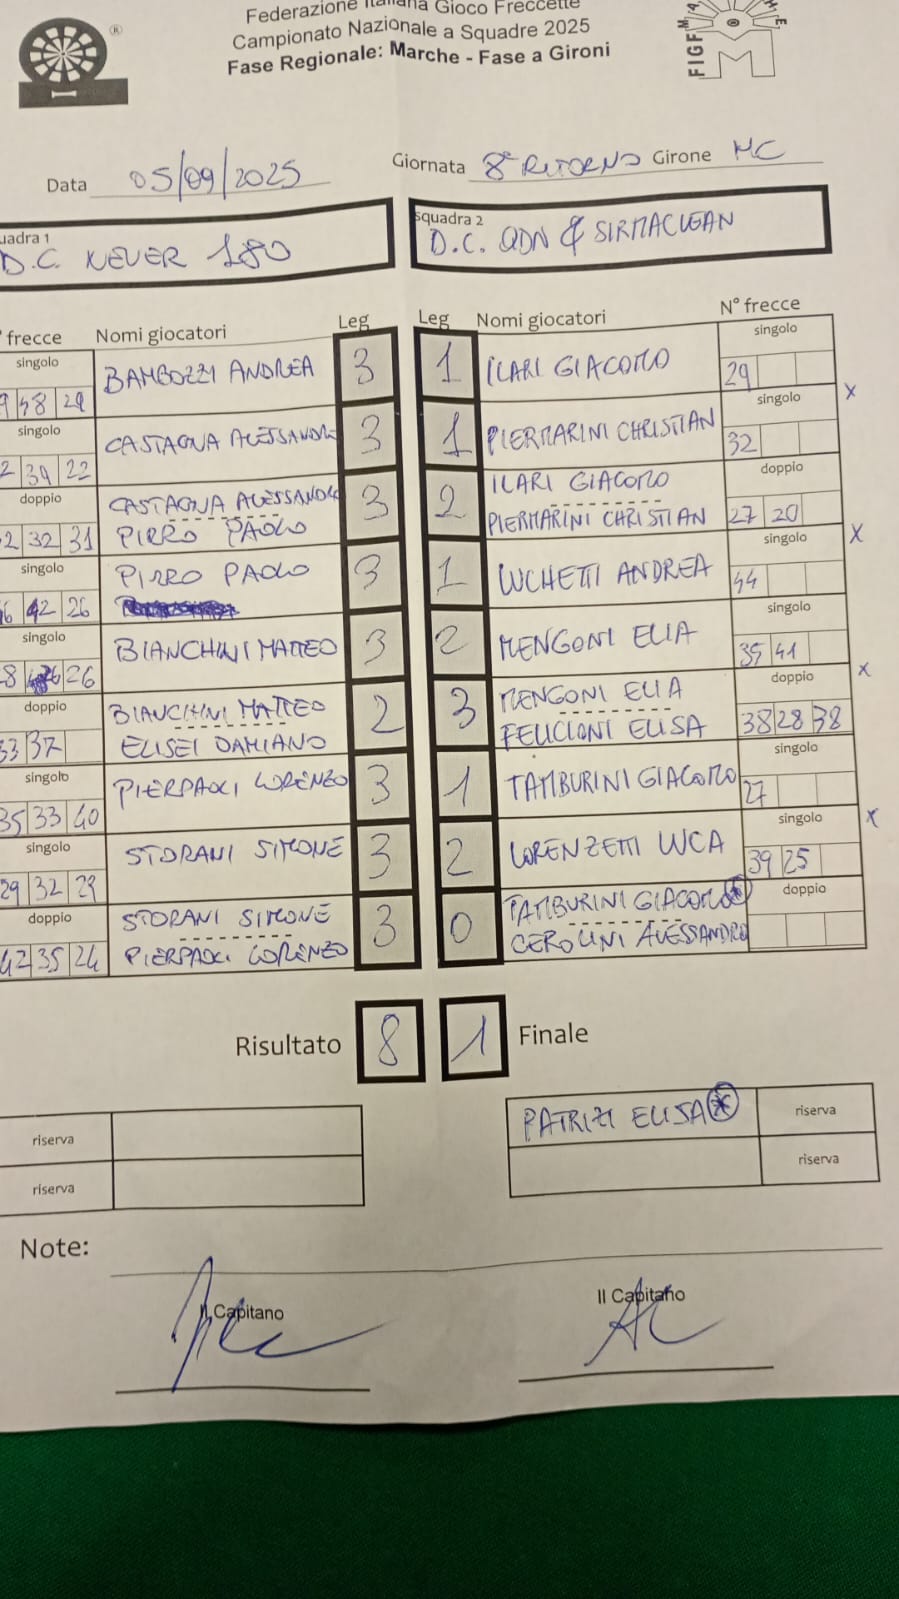 Federazione Italiana Gioco Freccette
Campionato Nazionale a Squadre 2025
Fase Regionale: Marche - Fase a Gironi
®
FIGF
Data 05/09/2025 Giornata 8ª RITORNO Girone MC
D.C. NEVER 180
Squadra 2
D.C. QDN & SIRMACLEAN
frecce Nomi giocatori Leg Leg Nomi giocatori N° frecce
singolo BAMBOZZI ANDREA 3 1 ILARI GIACOMO singolo
48 29 29
singolo CASTAGNA ALESSANDRO 3 1 PIERMARINI CHRISTIAN singolo x
22 32
doppio CASTAGNA ALESSANDRO 3 2 ILARI GIACOMO doppio
32 31 PIRRO PAOLO PIERMARINI CHRISTIAN 27 20
singolo PIRRO PAOLO 3 1 LUCHETTI ANDREA singolo x
42 26 44
singolo BIANCHINI MATTEO 3 2 MENGONI ELIA singolo
26 35 41
doppio BIANCHINI MATTEO 2 3 MENGONI ELIA doppio x
33 37 ELISEI DAMIANO FELICIONI ELISA 38 28 38
singolo PIERPAOLI LORENZO 3 1 TAMBURINI GIACOMO singolo
35 33 40 27
singolo STORANI SIMONE 3 2 LORENZETTI LUCA singolo x
29 32 29 39 25
doppio STORANI SIMONE 3 0 TAMBURINI GIACOMO * doppio
42 35 24 PIERPAOLI LORENZO CEROLINI ALESSANDRO
Risultato 8 1 Finale
riserva PATRIZI ELISA * riserva
riserva riserva
Note:
Il Capitano Il Capitano